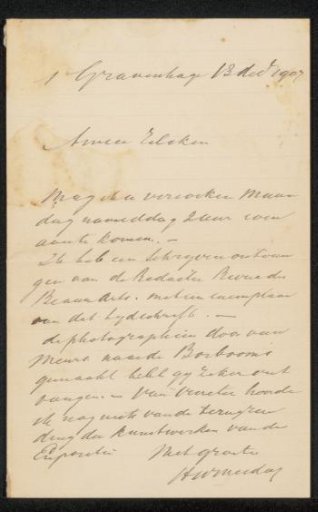 s Gravenhage 13 dec 1907
Amice Eilcken
Mag ik u verzoeken Maan
dag namiddag 2 uur even
aan te komen. —
Ik heb een schrijven ontvan
gen van de Redactie Revue des
Beaux Arts. met een exemplaar
van dat tydschrift. —
de photographieën door van
Meurs naar de Bosboom's
gemaakt hebt gy zeker ont
vangen. — Van Venetie hoorde
ik nog niets van de terugzen
ding der kunstwerken van de
Expositie Met groete
HWMesdag